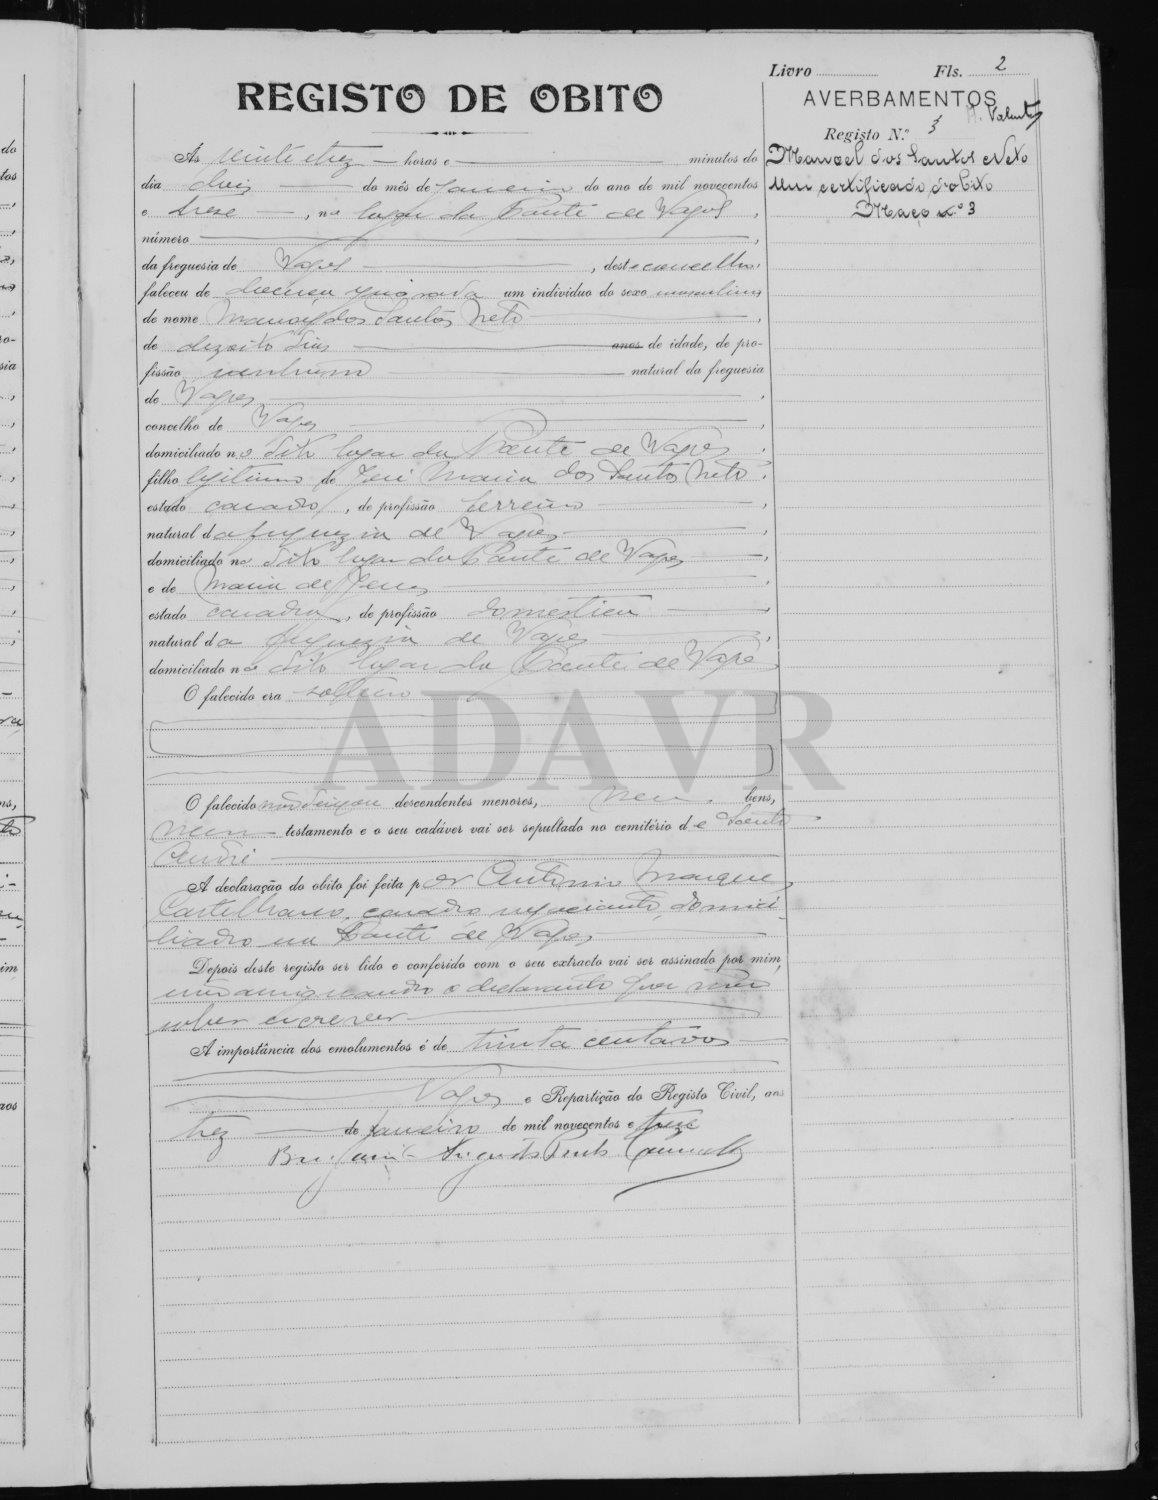 Livro Fls. 2
REGISTO DE OBITO
AVERBAMENTOS
Registo N.º 3
Manoel dos Santos Neto
um certificado d'obito
Maço n.º 3
Ás vinte e trez horas e minutos do
dia dois do mês de Janeiro do ano de mil novecentos
e treze, no lugar da Ponte de Vagos,
número,
da freguesia de Vagos, deste concelho,
faleceu de doença ignorada um individuo do sexo masculino
de nome Manoel dos Santos Neto,
de dezoito dias anos de idade, de pro-
fissão nenhuma natural da freguesia
de Vagos,
concelho de Vagos,
domiciliado no dito lugar da Ponte de Vagos,
filho legitimo de José Maria dos Santos Neto,
estado casado, de profissão serreiro,
natural da freguezia de Vagos,
domiciliado no dito lugar da Ponte de Vagos,
e de Maria de Jesus,
estado casada, de profissão domestica,
natural da freguezia de Vagos,
domiciliado no dito lugar da Ponte de Vagos
O falecido era solteiro
ADAVR
O falecido não deixou descendentes menores, nem bens,
nem testamento e o seu cadáver vai ser sepultado no cemitério de Santo
André
A declaração do obito foi feita por Antonio Marques
Castelhano, casado negociante, domici-
liado em Ponte de Vagos
Depois deste registo ser lido e conferido com o seu extracto vai ser assinado por mim,
não assignando o declarante por não
saber escrever
A importância dos emolumentos é de trinta centavos
Vagos e Repartição do Registo Civil, aos
trez de Janeiro de mil novecentos e treze